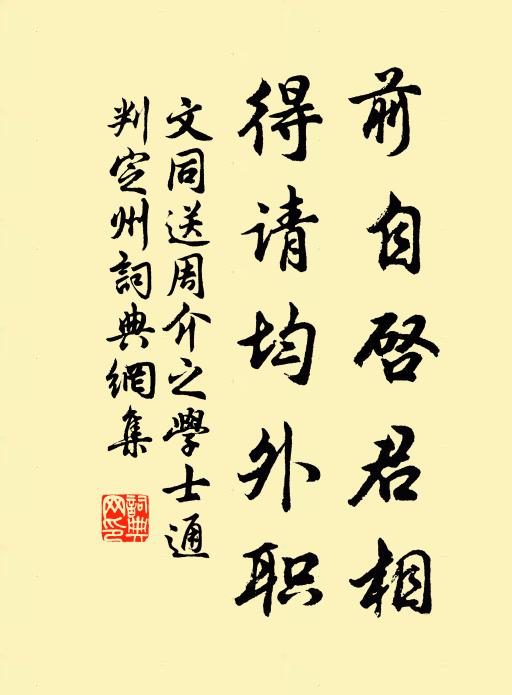 前自启君相
得请均外职
文同送周介之學士通
判定州詞典網集
詞典
网印